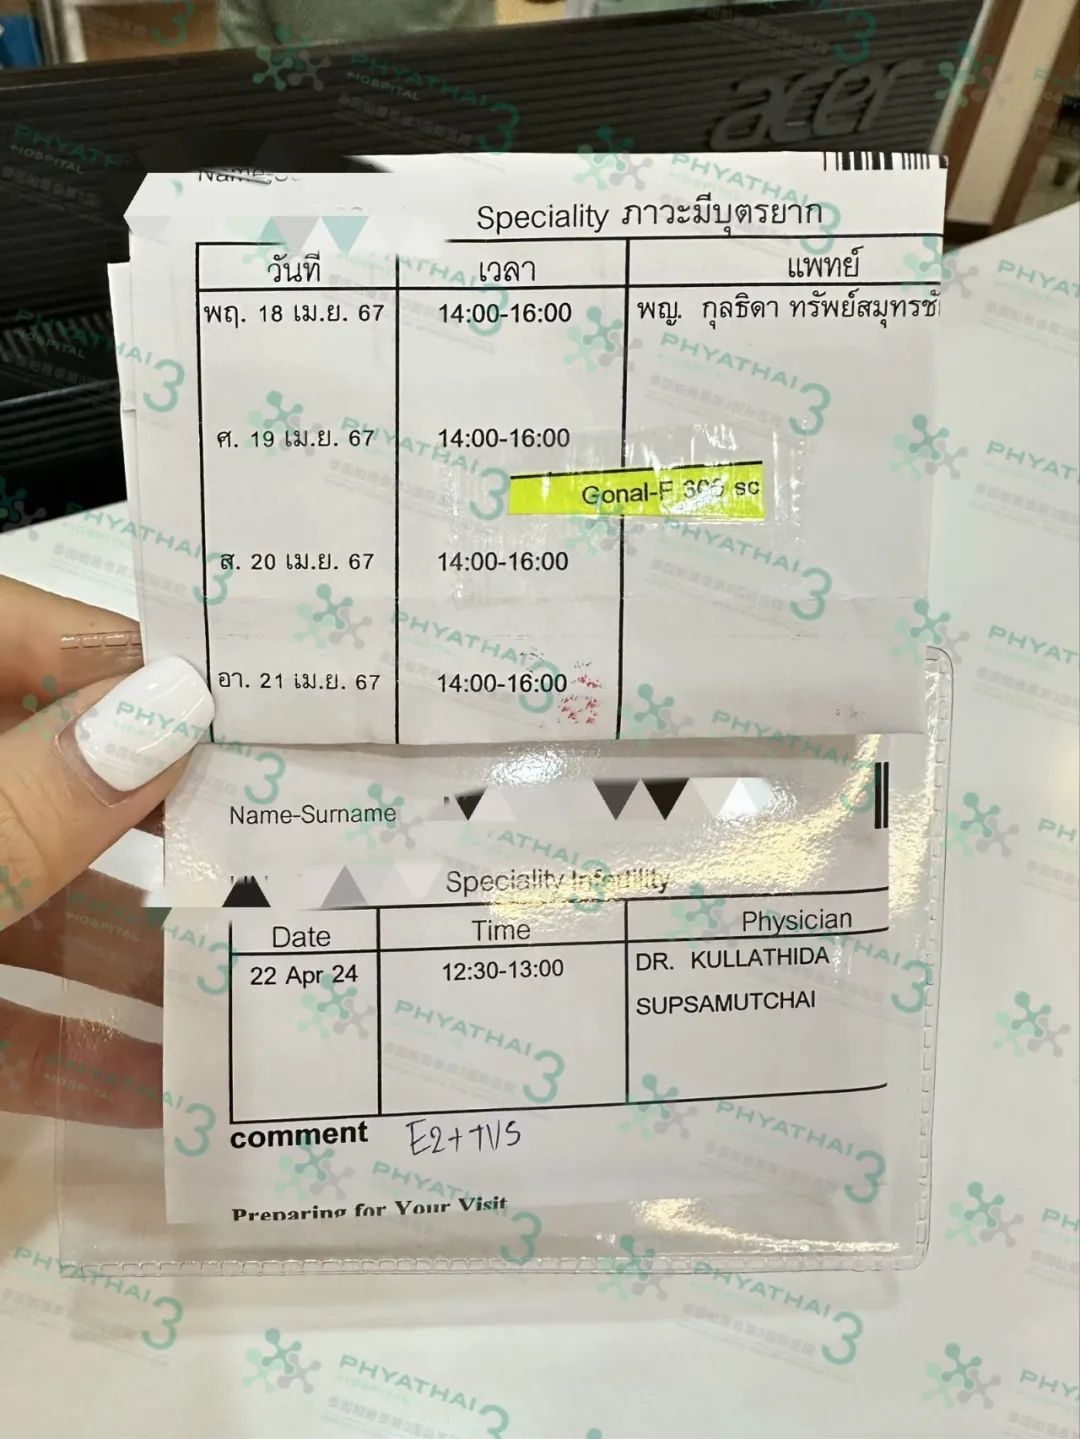 acer
Speciality ภาวะมีบุตรยาก
วันที่ เวลา แพทย์
พฤ. 18 เม.ย. 67 14:00-16:00 พญ. กุลธิดา
ศ. 19 เม.ย. 67 14:00-16:00
Gonal-F sc
ส. 20 เม.ย. 67 14:00-16:00
อา. 21 เม.ย. 67 14:00-16:00
Name-Surname
Speciality Infertility
Date Time Physician
22 Apr 24 12:30-13:00 DR. KULLATHIDA
SUPSAMUTCHAI
comment E2+TVS
Preparing for Your Visit
PHYATHAI 3
HOSPITAL